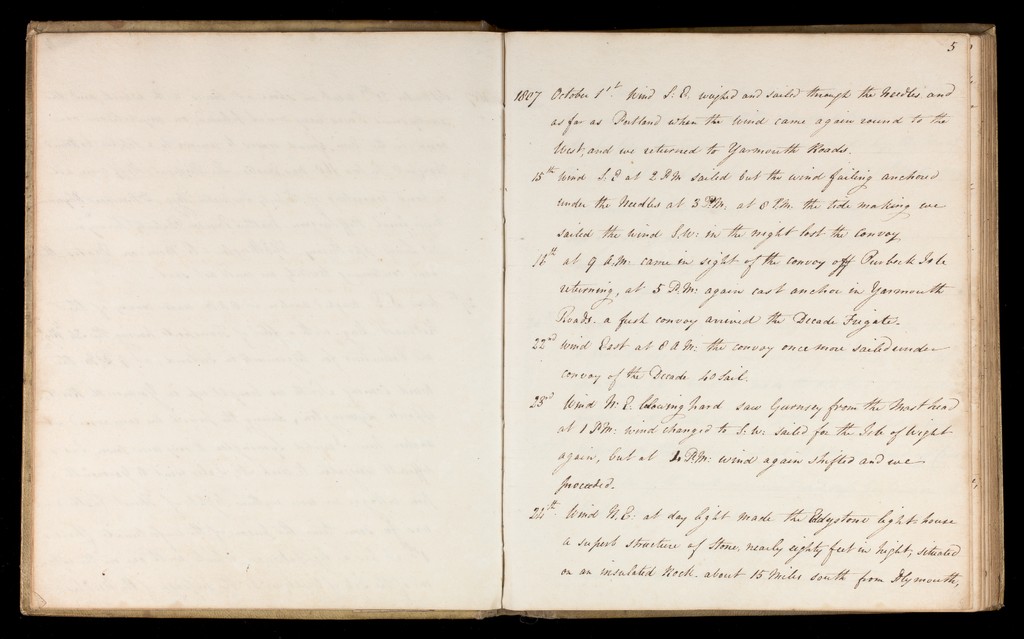 5
1807 October 1st Wind S. E. weighed and sailed through the Needles and
as far as Portland when the wind came again round to the
West, and we returned to Yarmouth Roads.
15th Wind S. E at 2 P.M sailed but the wind failing anchored
under the Needles at 3 P.M. at 8 P.M. the tide making we
sailed the wind S.W: in the night lost the convoy
at 9 A.M: came in sight of the convoy off Purbeck Isle
returning, at 5 P.M: again cast anchor in Yarmouth
Roads. a fresh convoy arrived the Decade Frigate.
22nd Wind East at 8 A.M: the convoy once more sailed under
convoy of the Decade 40 Sail.
23rd Wind N. E. blowing hard saw Guernsey from the Mast head
at 1 P.M: wind changed to S: W: sailed for the Isle of Wight
again, but at 4 P.M: wind again shifted and we
proceeded.
24th Wind N. E: at day light made the Eddystone light house
a superb structure of Stone, nearly eighty feet in hight, situated
on an insulated Rock. about 15 Miles south from Plymouth,